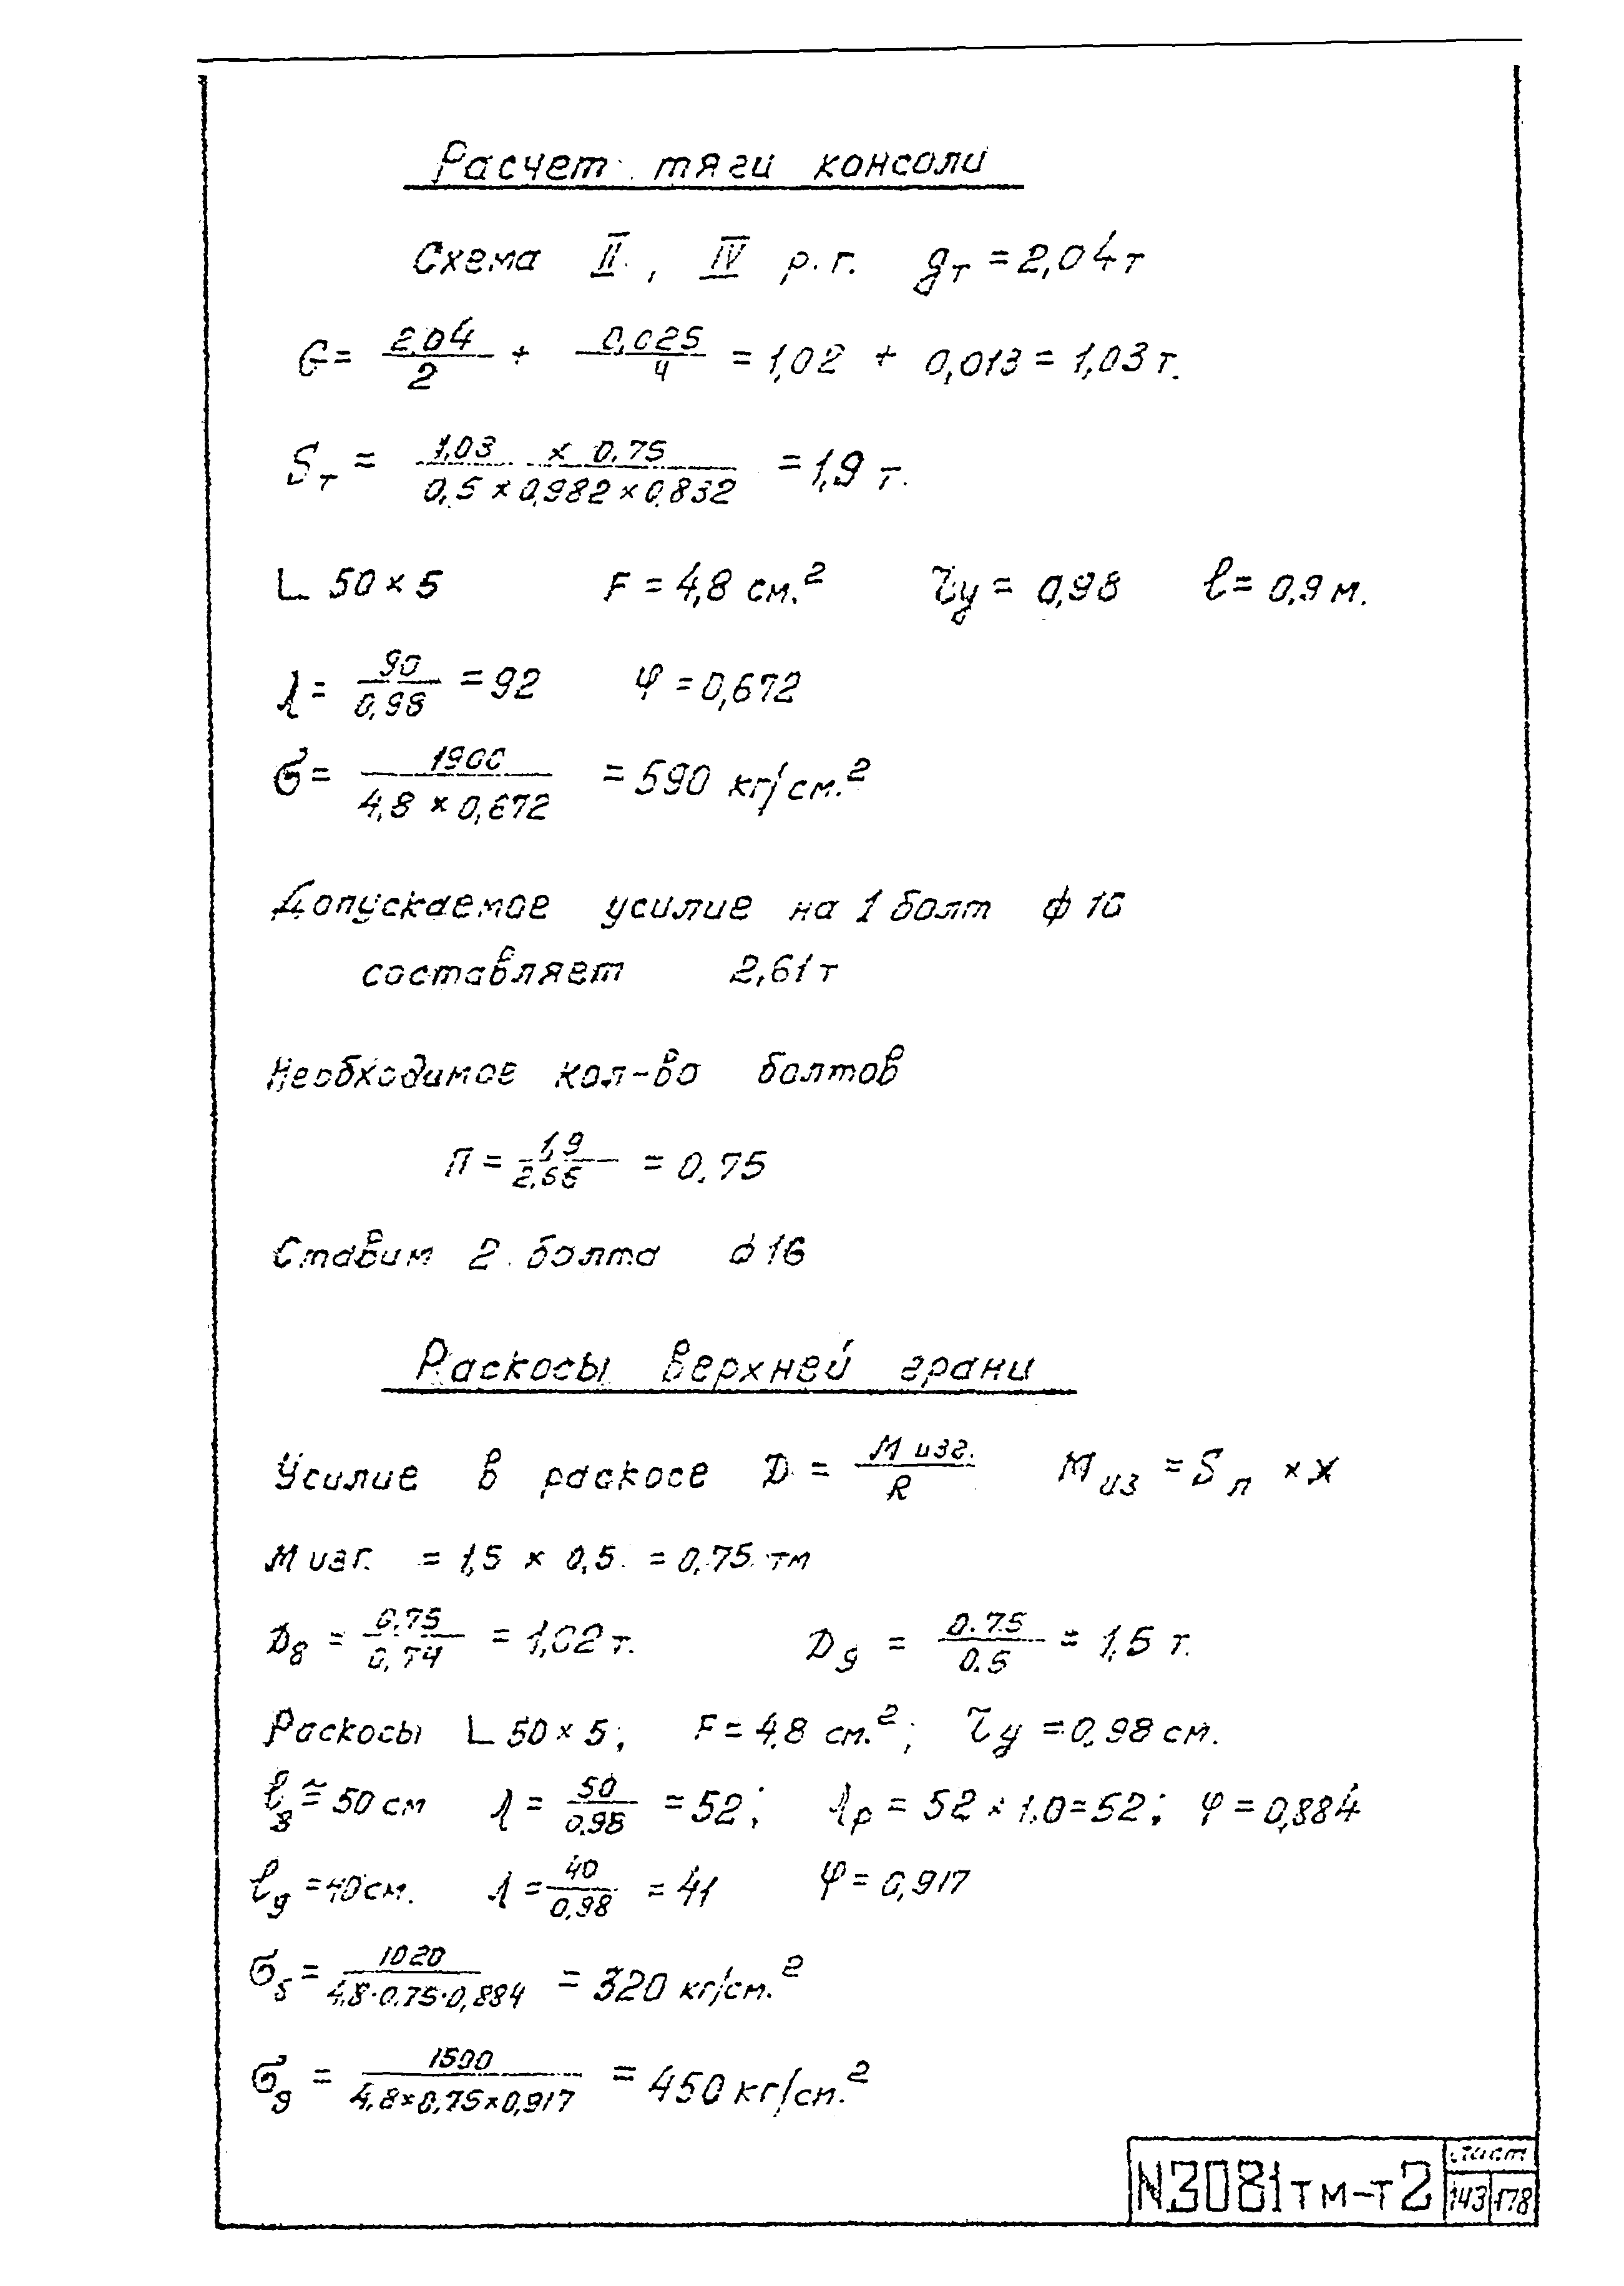 Расчет тяги консоли
Схема II, IV р.г. gт = 2,04т
G = 2.04/2 + 0,025/4 = 1,02 + 0,013 = 1,03 т.
Sт = 1,03 × 0.75 / 0,5 × 0,982 × 0,832 = 1,9 т.
∟ 50×5 F = 4,8 см.² τy = 0,98 ℓ = 0,9 м.
λ = 90/0,98 = 92 φ = 0,672
σ = 1900 / 4,8 × 0,672 = 590 кг/см.²
Допускаемое усилие на 1 болт ф 16
составляет 2,61т
Необходимое кол-во болтов
п = 1,9/2,66 = 0,75
Ставим 2 болта ф 16
Раскосы верхней грани
Усилие в раскосе D = М изг./R Миз = Sп × x
М изг. = 1,5 × 0,5 = 0,75 тм
D8 = 0,75/0,74 = 1,02 т. D9 = 0.75/0.5 = 1,5 т.
Раскосы ∟ 50×5; F = 4,8 см.²; τy = 0,98 см.
ℓ8 ≈ 50 см λ = 50/0,98 = 52; λр = 52 × 1,0 = 52; φ = 0,884
ℓ9 = 40 см. λ = 40/0,98 = 41 φ = 0,917
σ8 = 1020 / 4,8·0,75·0,884 = 320 кг/см.²
σ9 = 1500 / 4,8×0,75×0,917 = 450 кг/см.²
N3081тм-т2
лист
143 178